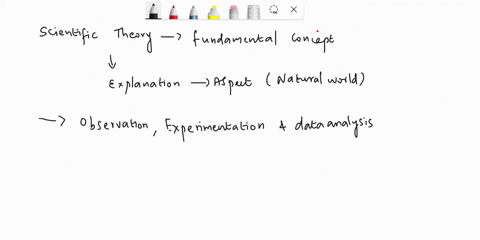 Scientific Theory → fundamental concept
↓
Explanation → Aspect (Natural world)
→ Observation, Experimentation & data analysis